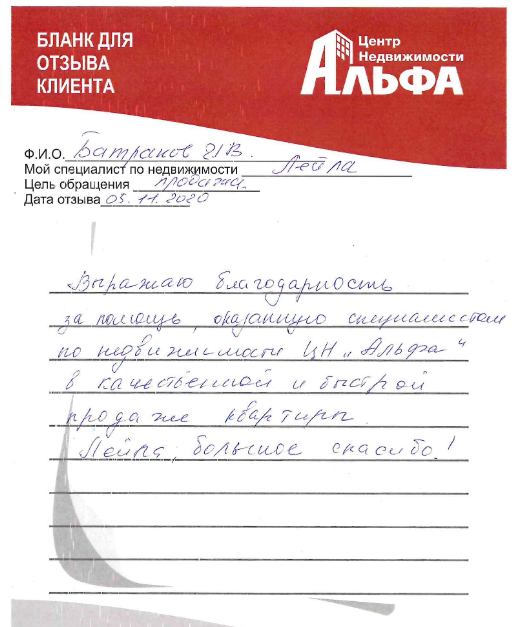 БЛАНК ДЛЯ
ОТЗЫВА
КЛИЕНТА
Центр
Недвижимости
АЛЬФА
Ф.И.О. Батраков
Мой специалист по недвижимости Лейла
Цель обращения продажа
Дата отзыва 05.11.2020
Выражаю благодарность
за помощь, оказанную специалистом
по недвижимости ЦН „Альфа“
в качественной и быстрой
продаже квартиры.
Лейла, большое спасибо!